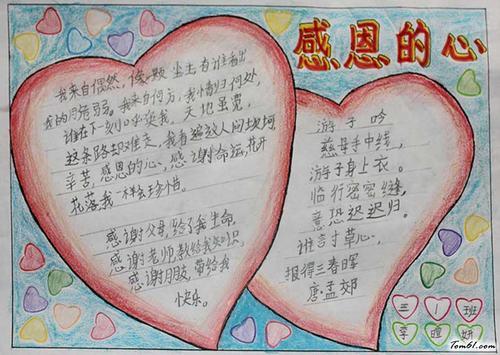 感恩的心
我来自偶然,像一颗尘土有谁看出
我的脆弱。我来自何方,我情归何处,
谁在下一刻呼唤我。天地虽宽,
这条路却难走,我看遍放人间坎坷
辛苦,感恩的心,感谢命运,花开
花落我一样会珍惜。
感谢父母,给了我生命,
感谢老师,教给我知识,
感谢朋友,带给我
快乐。
游子吟
慈母手中线,
游子身上衣。
临行密密缝,
意恐迟迟归。
谁言寸草心,
报得三春晖
唐孟郊
三 1 班
李 妍
Tom61.com